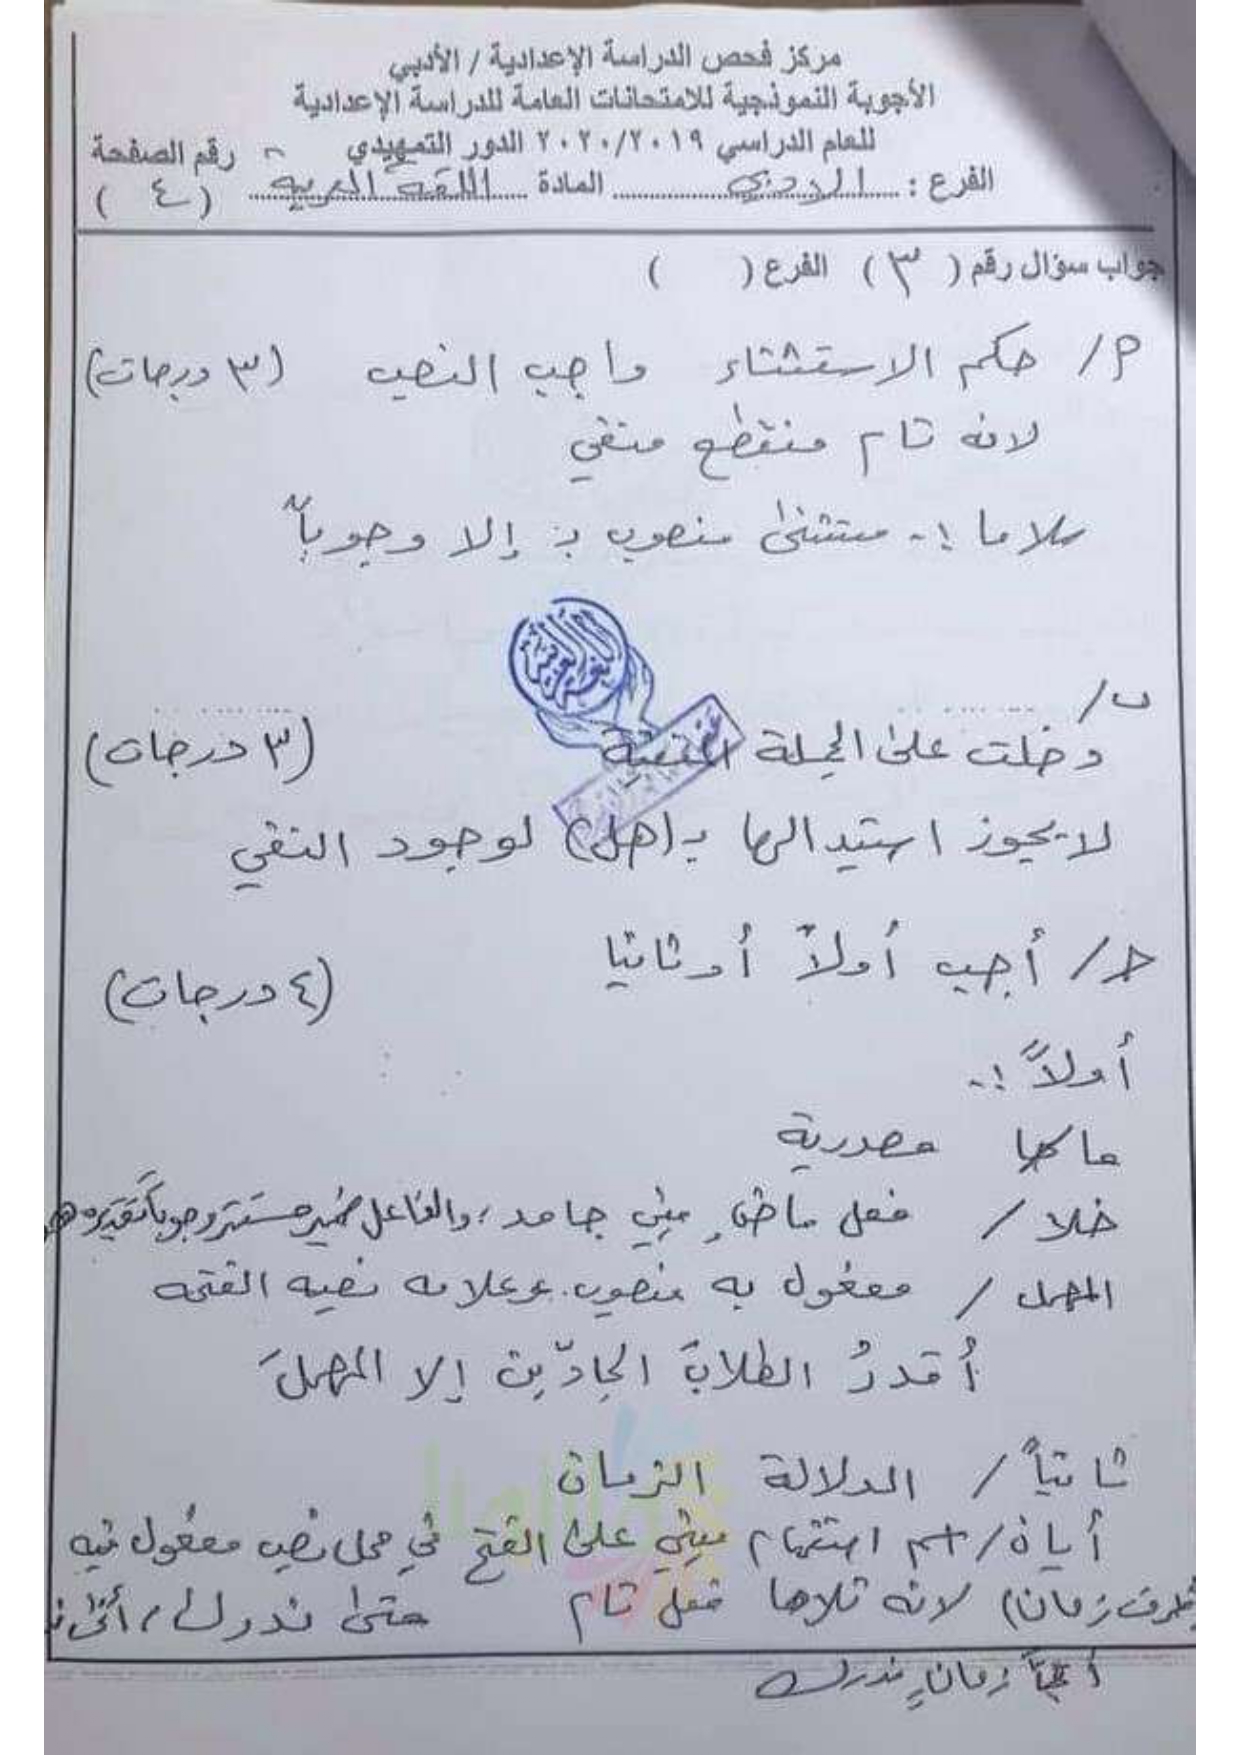 مركز فحص الدراسة الإعدادية / الأدبي
الأجوبة النموذجية للامتحانات العامة للدراسة الإعدادية
للعام الدراسي ٢٠٢٠/٢٠١٩ الدور التمهيدي رقم الصفحة
الفرع : الادبي المادة اللغة العربية ( ٤ )
جواب سؤال رقم ( ٣ ) الفرع ( )
م/ حكم الاستثناء واجب النصب (٣ درجات)
لانه تام منقطع منفي
سلاما :- مستثنى منصوب بـ إلا وجوباً
ب/
دخلت على الجملة المنفية (٣ درجات)
لا يجوز استبدالها بـ(هل) لوجود النفي
ج/ أجب أولاً أو ثانيا (٤ درجات)
أولاً :-
ما / مصدرية
خلا / فعل ماضٍ مبني جامد، والفاعل ضمير مستتر وجوباً تقديره
المهمل / مفعول به منصوب وعلامه نصبه الفتحه
أُقدرُ الطلابَ الجادّين إلا المهملَ
ثانياً / الدلالة الزمان
أيان / اسم استفهام مبني على الفتح في محل نصب مفعول فيه
(ظرف زمان) لانه تلاها فعل تام متى ندرك /
زمانٍ ندرك